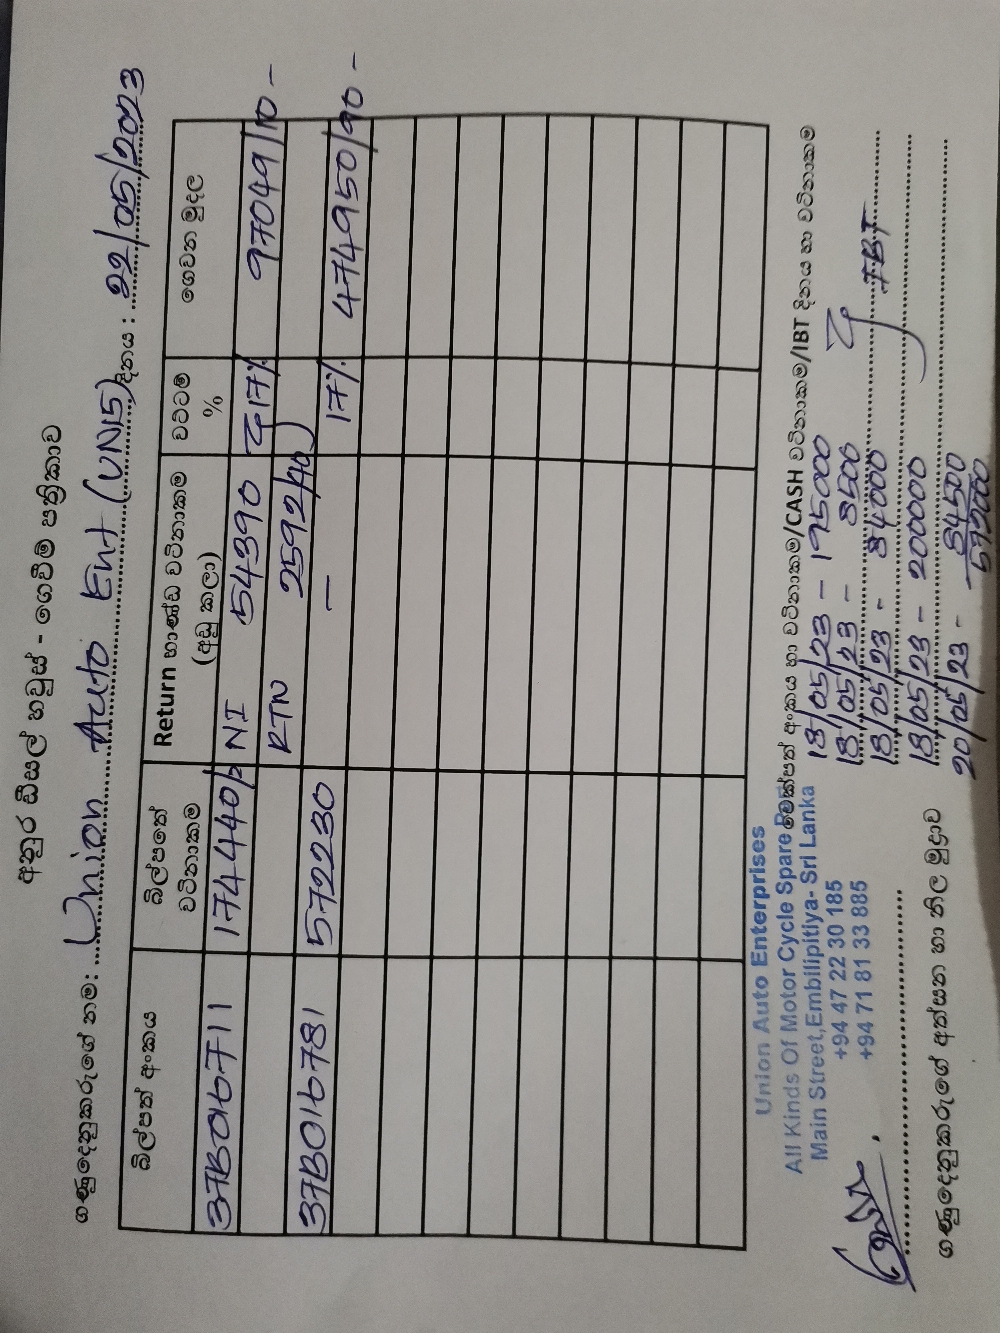 අනුර ඩීසල් හවුස් - ගෙවීම් පත්‍රිකාව
ගණුදෙනුකරුගේ නම: Union Auto Ent (UN15) දිනය : 22/05/2023
බිල්පත් අංකය
බිල්පතේ වටිනාකම
Return භාණ්ඩ වටිනාකම (අඩු කලා)
වට්ටම් %
ගෙවන මුදල
37B016711 174440/= NI 54390 17% 97049/10 -
RTN 2592/40
37B016781 572230 — 17% 474950/90 -
Union Auto Enterprises
All Kinds Of Motor Cycle Spare
Main Street,Embilipitiya- Sri Lanka
+94 47 22 30 185
+94 71 81 33 885
චෙක්පත් අංකය හා වටිනාකම/CASH වටිනාකම/IBT දිනය හා වටිනාකම
18/05/23 - 195000
18/05/23 - 8500
18/05/23 - 84000 IBT
18/05/23 - 200000
20/05/23 - 84500
572000
ගණුදෙනුකරුගේ අත්සන හා නිල මුද්‍රාව